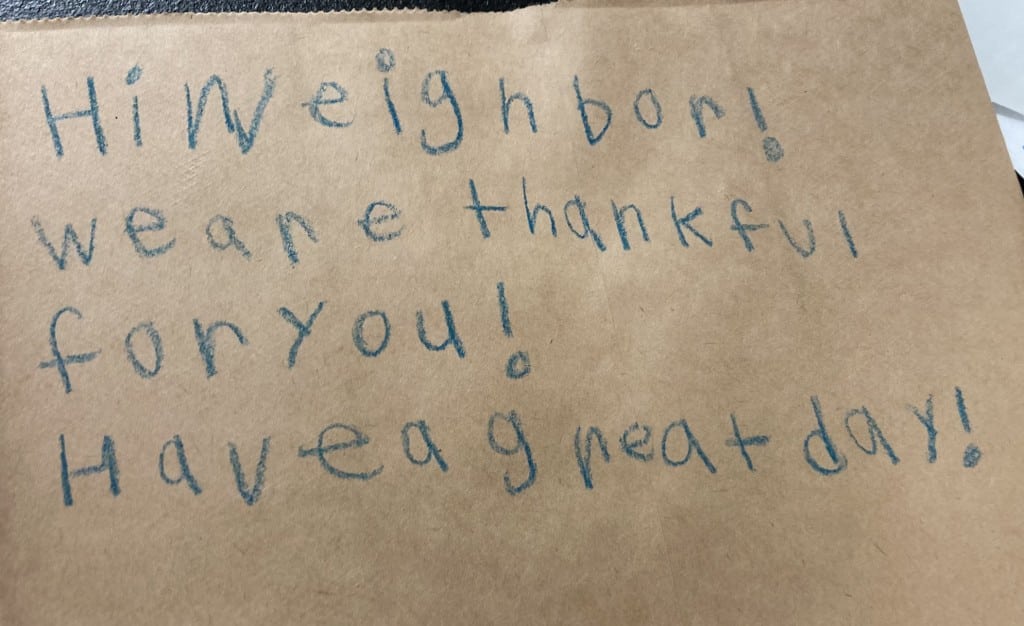 Hi Neighbor!
we are thankful
for you!
Have a great day!